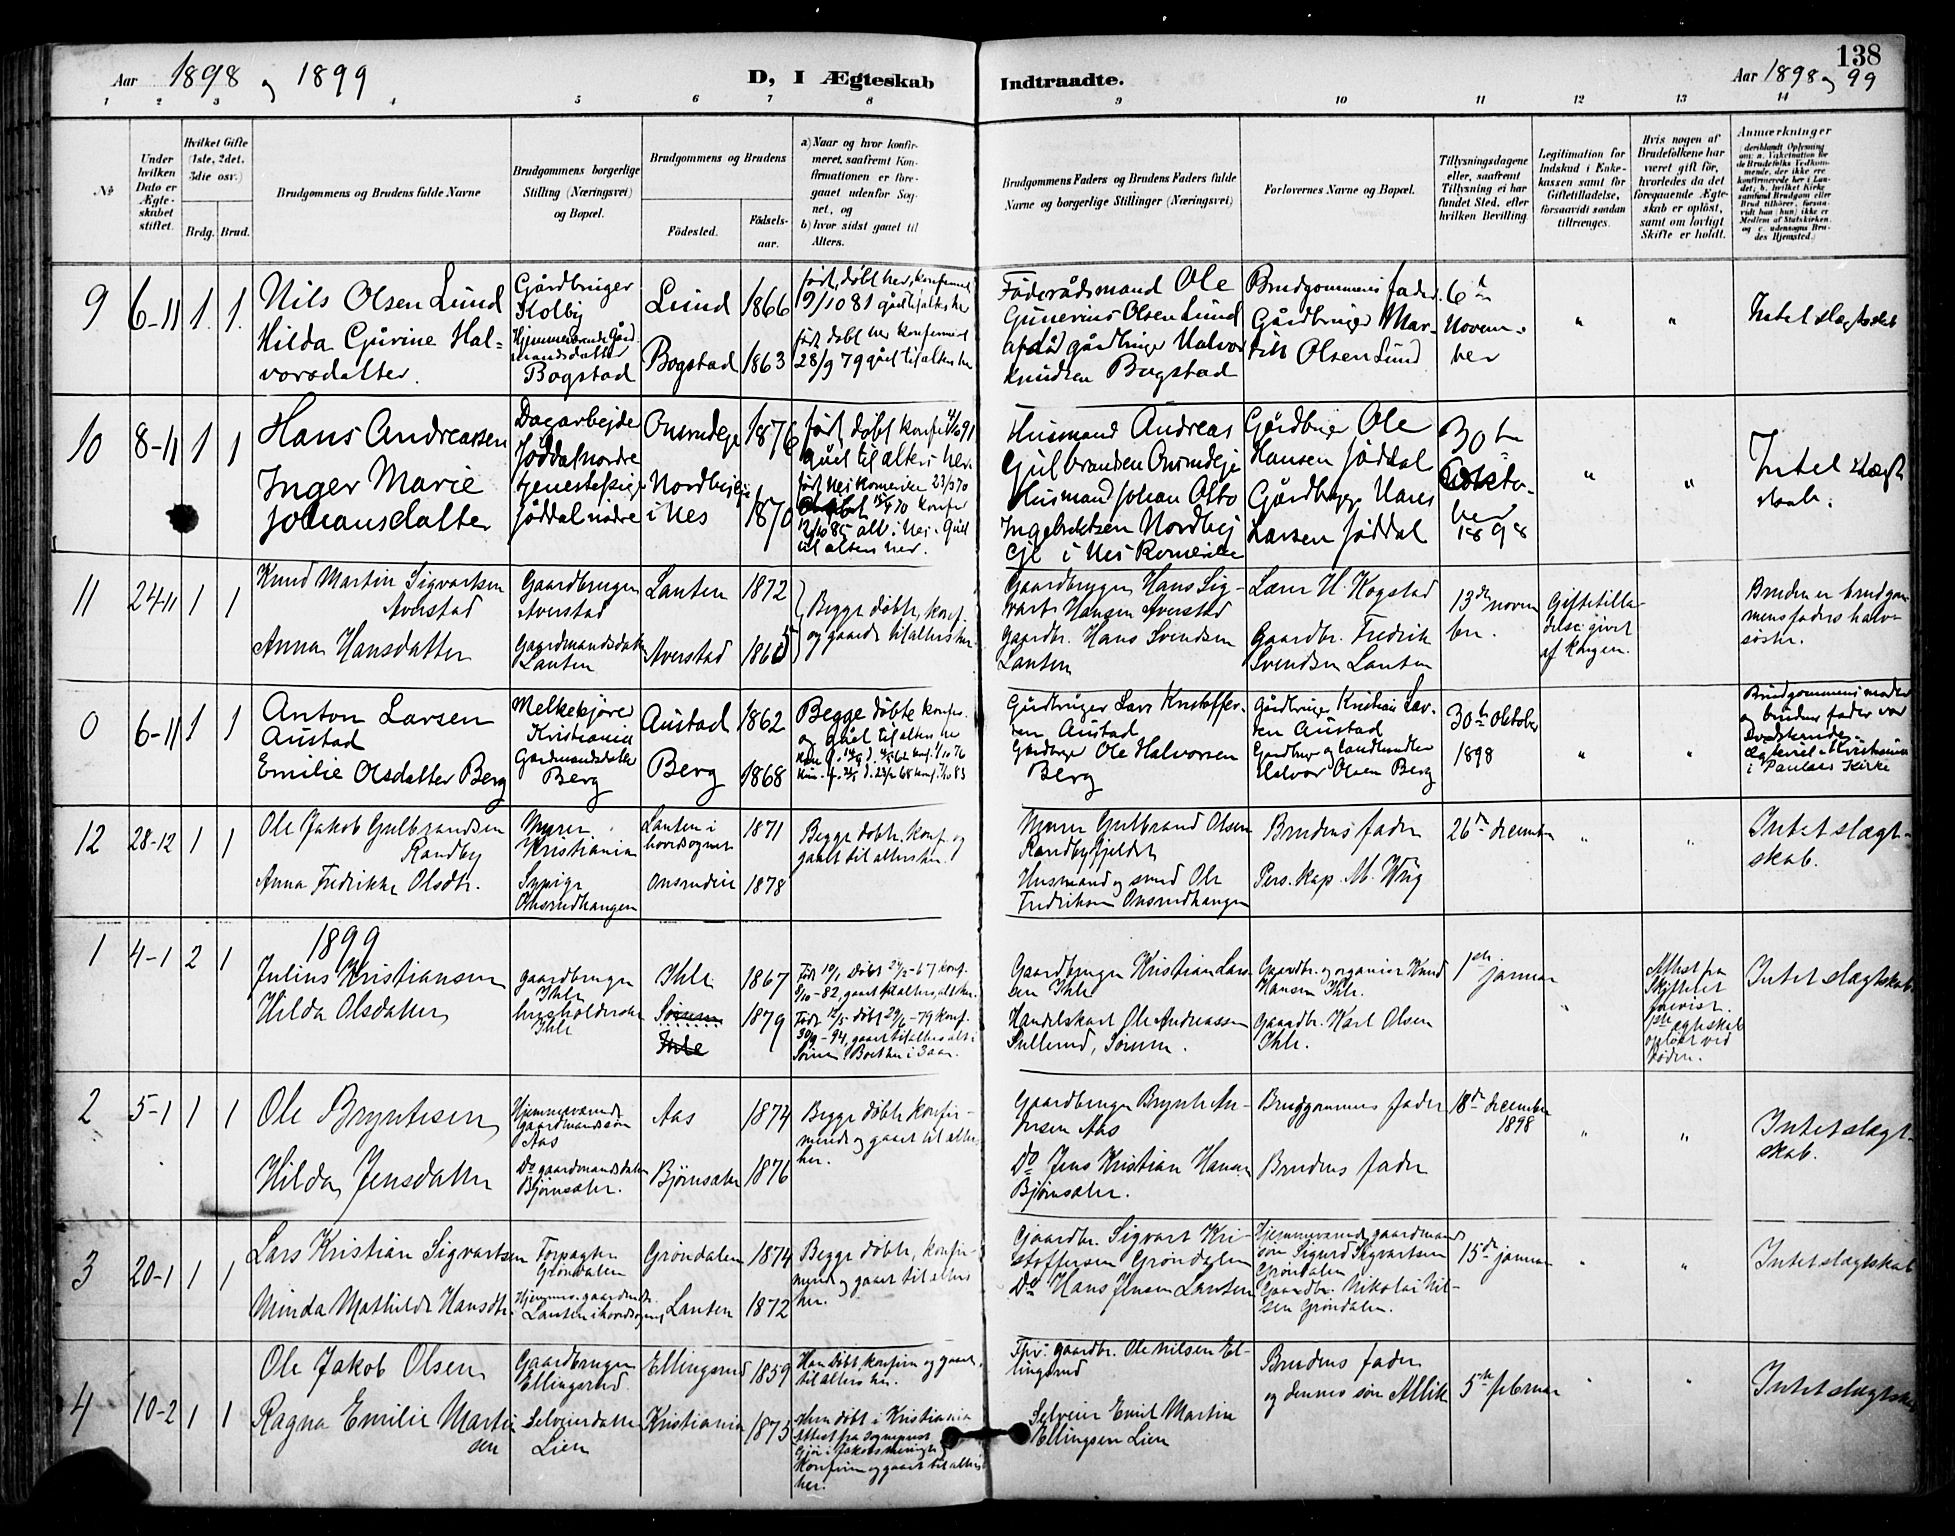 138
Aar 1898 og 1899
D, I Ægteskab
Indtraadte.
Aar 1898 og 99
1 2 3 4 5 6 7 8 9 10 11 12 13 14
No
Under hvilken Dato er Ægteskabet stiftet.
Hvilket Gifte (1ste, 2det, 3die osv.)
Brdg. Brud.
Brudgommens og Brudens fulde Navne
Brudgommens borgerlige Stilling (Næringsvei) og Bopæl.
Brudgommens og Brudens
Fødested.
Fødselsaar.
a) Naar og hvor konfirmeret, saafremt Konfirmationen er foregaaet udenfor Sognet, og
b) hvor sidst gaaet til Alters.
Brudgommens Faders og Brudens Faders fulde Navne og borgerlige Stillinger (Næringsvei)
Forlovernes Navne og Bopæl.
Tillysningsdagene eller, saafremt Tillysning ei har fundet Sted, efter hvilken Bevilling.
Legitimation for Indskud i Enkekassen samt for Giftetilladelse, forsaavidt saadan tiltrænges.
Hvis nogen af Brudefolkene har været gift før, hvorledes da det foregaaende Ægteskab er opløst, samt om lovligt Skifte er holdt.
Anmærkninger
9
6-11
1. 1.
Nils Olsen Lund
Hilda Gurine Halvorsdatter.
Gårdbruger
Kolby
Hjemmeværende Gårdmandsdatter
Bogstad
Lund 1866
Bogstad 1863
født, døbt her, konfirmet
9/10 81 gået til alters her
født døbt her konfirmet
28/9 79 gået til alters her
Føderådsmand Ole
Gunerius Olsen Lund
afdød gårdbruger Halvor
Knudsen Bogstad
Brudgommens fader.
Gårdbruger Martin Olsen Lund
6te November
" "
Intet slægtskab
10
8-11
1 1
Hans Andreassen
Inger Marie
Johansdatter
Dagarbejde
Jøddal nordre
tjenestepige
Jøddal nødre
Onsrudeje 1876
Nordbyeje
i Nes 1870
født, døbt konf 4/10 91
gået til alters her.
født Nes Romerike 23/3 70
12/10 85 alt i Nes. Gået
til alters her.
Husmand Andreas
Gulbrandsen Onsrudeje
Husmand Johan Otto
Ingebretsen Nordby
eje i Nes Romerike
Gårdbruger Ole
Hansen Jøddal
Gårdbruger Hans
Larsen Jøddal
30te
Oktober
1898
" "
Intet slægtskab.
11
24-11
1 1
Knud Martin Sigvartsen
Averstad
Anna Hansdatter
Gaardbruger
Averstad
Gaardmandsdatter
Lauten
Lauten 1872
Averstad 1865
Begge døbte, konf.
og gaaede til alters her.
Gaardbruger Hans Sigvart Hansen Averstad
Gaardbr. Hans Svendsen
Lauten
Lars H. Kogstad
Gaardbr. Fredrik
Svendsen Lauten
13de november.
Giftetilladelse givet
af Kongen.
Bruden er brudgommens faders halvsøster.
0
6-11
1 1
Anton Larsen
Austad
Emilie Olsdatter Berg
Melkekjører
Kristiania
Gårdmandsdatter
Berg
Austad 1862
Berg 1868
Begge døbte konfir.
og gået til alters her
Gårdbruger Lars Kristoffersen Austad
Gårdbruger Ole Halvorsen
Berg
Gårdbruger Kristian Larsen Austad
Gårdbruger og landhandler
Halvor Olsen Berg
30te Oktober
1898
" "
Brudgommens moder
og brudens fader var
Ægteviet i Kristiania
i Paulus Kirke
12
28-12
1 1
Ole Jakob Gulbrandsen
Randby
Anna Fredrikke Olsdtr.
Murer
Kristiania
Sypige
Onsrudhaugen
Lauten i
hovedsognet 1871
Onsrudeie 1878
Begge døbte, konf. og
gaaet til alters her.
Murer Gulbrand Olsen
Randbyfjeldet
Husmand og smed Ole
Fredriksen Onsrudhaugen
Brudens fader
Pers. kap. M. Wiig
26de december
" "
Intet slægtskab.
1899
1
4-1
2 1
Julius Kristiansen
Hilda Olsdatter
Gaardbruger
Ihle
husholderske
Ihle
Ihle 1867
Sørum 1879
Ihle
Født 19/1 Døbt 24/2-67 konf.
8/10-82, gaaet til alters, alt her.
Født 12/5 døbt 29/6-79 konf.
30/9-94, gaaet til alters alt i
Sørum. Boet her i 3 aar.
Gaardbruger Kristian Larsen Ihle
Handelskarl Ole Andreassen
Sullerud, Sørum.
Gaardbr. og organist Knud
Hansen Ihle.
Gaardbr. Karl Olsen
Ihle.
1ste januar
"
Attest fra
Skifteret
forevist.
1ste ægteskab
opløst ved
døden.
Intet slægtskab.
2
5-1
1 1
Ole Bryntesen
Hilda Jensdatter
Hjemmeværende
gaardmandssøn
Aas
Do gaardmandsdatter
Bjørnsæter.
Aas 1874
Bjørnsæter 1876
Begge døbte konfirmerede og gaaet til alters
her.
Gaardbruger Brynte Andersen Aas
Do Jens Kristian Hansen
Bjørnsæter.
Brudgommens fader
Brudens fader
18de december
1898
" "
Intet slægtskab.
3
20-1
1 1
Lars Kristian Sigvartsen
Minda Mathilde Hansdtr.
Forpagter
Grøndalen
Hjemmev. gaardmdr.
Lauten i hovedsognet
Grøndalen 1874
Lauten 1872
Begge døbte, konfirmerede og gaaet til alters
her.
Gaardbr. Sigvart Kristoffersen Grøndalen
Do Hans Jensen Lauten
Hjemmeværende gaardmandssøn Sigurd Sigvartsen
Grøndalen
Gaardbr. Nikolai Nilsen Grøndalen.
15de januar
" "
Intet slægtskab
4
10-2
1 1
Ole Jakob Olsen
Ragna Emilie Martinsen
Gaardbruger
Ellingsrud.
Selveierdatter
Lien
Ellingsrud 1859
Kristiania 1873
Han døbt, konfirm og gaaet
til alters her.
Hun døbt i Kristiania
Attest fra sogneprest
i Jakobs menighed
Konfirm og gaaet til alters
her.
Gaardbr. Ole Nilsen Ellingsrud
Selveier Emil Martin
Ellingsen Lien
Brudens fader
og dennes søn
5te februar
" "
Intet slægtskab